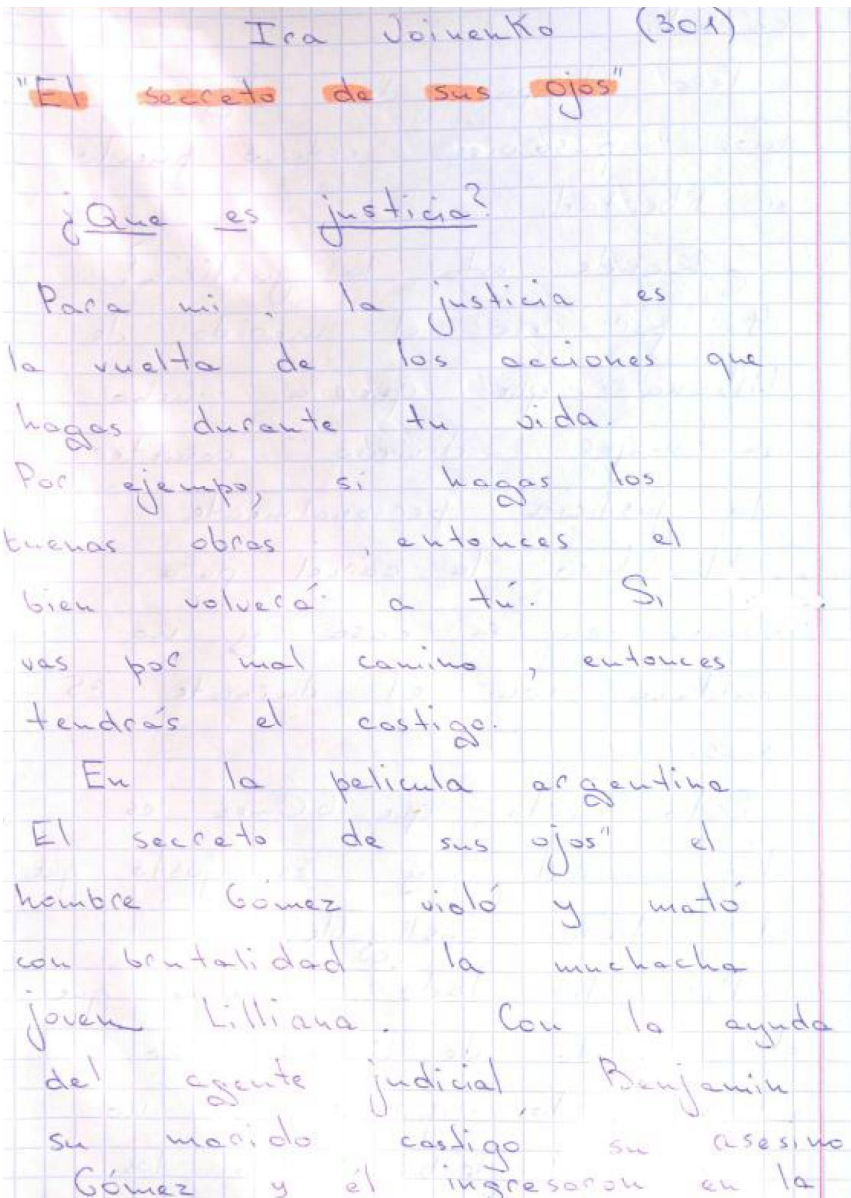 Ira Voinenko (301)
"El secreto de sus ojos"
¿Que es justicia?
Para mi, la justicia es
la vuelta de los acciones que
hagas durante tu vida.
Por ejempo, si hagas los
buenas obras, entonces el
bien volverá a tú. Si
vas por mal camino, entonces
tendrás el costigo.
En la pelicula argentina
El secreto de sus ojos" el
hombre Gómez violó y mató
con brutalidad la muchacha
joven Lilliana. Con la ayuda
del agente judicial Benjamin
su marido castigó su asesino
Gómez y él ingresaron en la